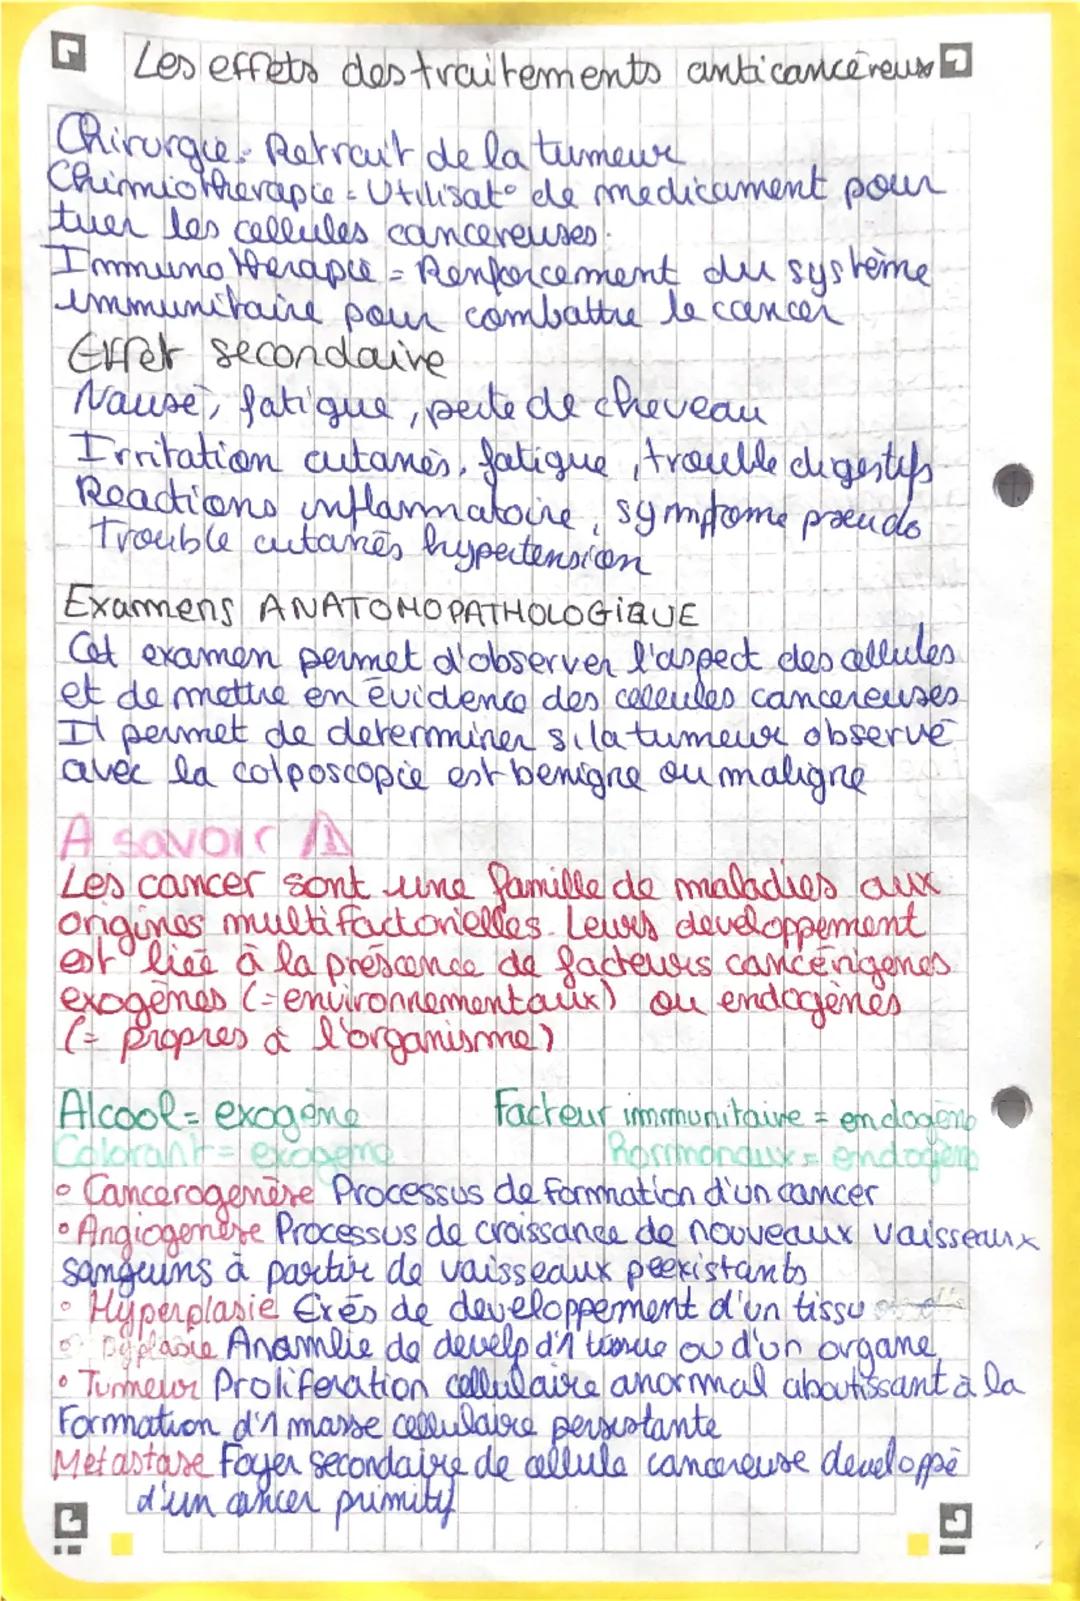 Les effets des traitements anticancéreux
Chirurgie = Retrait de la tumeur
Chimiotherapie = Utilisat° de medicament pour
tuer les cellules cancereuses.
Immunotherapie = Renforcement du système
immunitaire pour combattre le cancer
Effet secondaire
Nausé, fatigue, perte de cheveau
Irritation cutanés, fatigue, trouble digestifs
Reactions inflammatoire, symptome pseudo
Trouble cutanés hypertension
Examens ANATOMOPATHOLOGiQUE
Cet examen permet d'observer l'aspect des cellules
et de mettre en évidence des cellules cancereuses
Il permet de determiner si la tumeur observé
avec la colposcopie est benigne ou maligne
A savoir
Les cancer sont une famille de maladies aux
origines multifactorielles. Leurs developpement
est liée à la préscence de facteurs cancérigenes
exogènes (=environnementaux) ou endogènes
(= propres à l'organisme)
Alcool = exogène Facteur immunitaire = endogène
Colorant = exogene Hormonaux = endogene
• Cancerogenèse Processus de formation d'un cancer
• Angiogenèse Processus de croissance de nouveaux vaisseaux
sanguins à partir de vaisseaux peexistants
• Hyperplasie Exés de developpement d'un tissu
• Dyplasie Anamlie de develop d'1 tissue ou d'un organe
• Tumeur Proliferation cellulaire anormal aboutissant à la
formation d'1 masse cellulaire persistante
Metastase Foyer secondaire de cellule cancereuse developpé
d'un cancer primitif